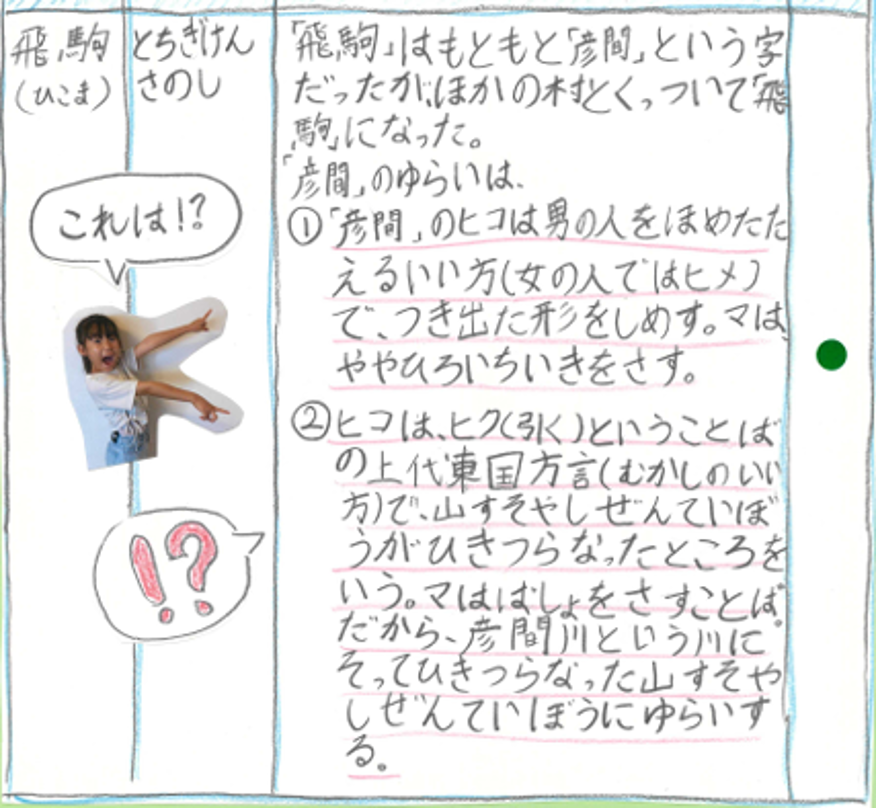 飛駒
(ひこま)
とちぎけん
さのし
「飛駒」はもともと「彦間」という字
だったが、ほかの村とくっついて「飛
駒」になった。
「彦間」のゆらいは、
①「彦間」のヒコは男の人をほめたた
えるいい方(女の人ではヒメ)
で、つき出た形をしめす。マは、
ややひろいちいきをさす。
②ヒコは、ヒク(引く)ということば
の上代東国方言(むかしのいい
方)で、山すそやしぜんていぼ
うがひきつらなったところを
いう。マはばしょをさすことば
だから、彦間川という川に
そってひきつらなった山すそや
しぜんていぼうにゆらいす
る。
これは!?
!?